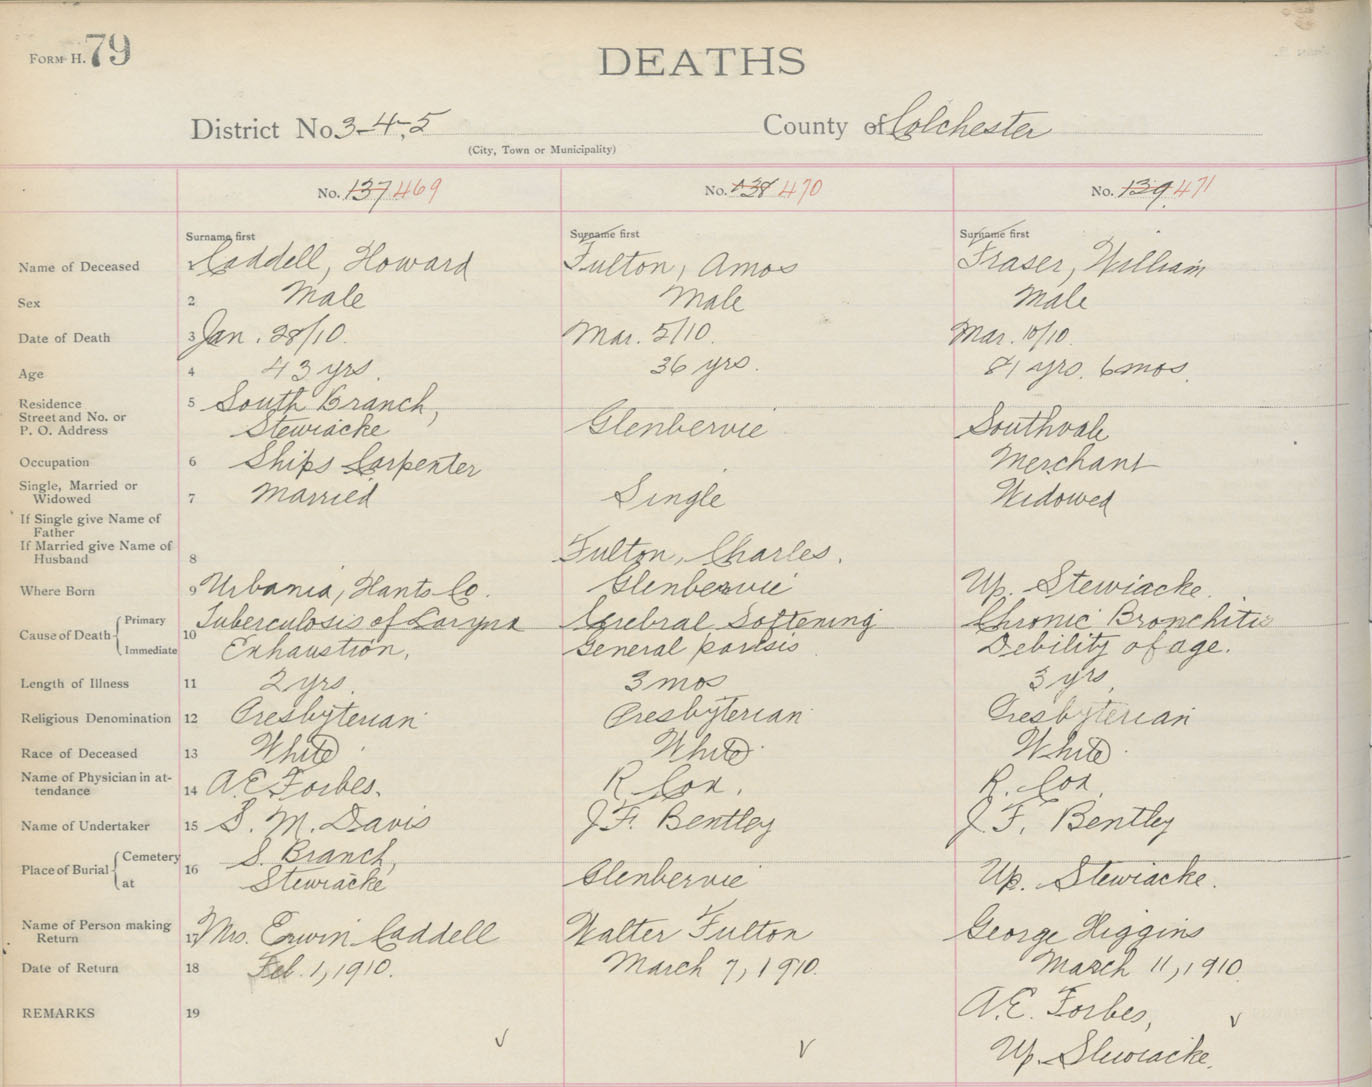 FORM H. 79
DEATHS
District No. 3-4-5 County of Colchester
(City, Town or Municipality)
No. 137 469 No. 138 470 No. 139 471
Surname first Surname first Surname first
Name of Deceased 1 Caddell, Howard Fulton, Amos Fraser, William
Sex 2 Male Male Male
Date of Death 3 Jan. 28/10. Mar. 5/10. Mar. 10/10.
Age 4 43 yrs. 36 yrs. 81 yrs. 6 mos.
Residence 5 South Branch,
Street and No. or
P. O. Address Stewiacke Glenbervie Southvale
Occupation 6 Ships Carpenter Merchant
Single, Married or
Widowed 7 Married Single Widowed
If Single give Name of
Father
If Married give Name of
Husband 8 Fulton, Charles.
Where Born 9 Urbania, Hants Co. Glenbervie Up. Stewiacke.
Cause of Death Primary 10 Tuberculosis of Larynx Cerebral Softening Chronic Bronchitis
Immediate Exhaustion. General parisis. Debility of age.
Length of Illness 11 2 yrs. 3 mos 3 yrs.
Religious Denomination 12 Presbyterian Presbyterian Presbyterian
Race of Deceased 13 White White White
Name of Physician in at-
tendance 14 A.E. Forbes. R. Cox. R. Cox.
Name of Undertaker 15 S. M. Davis J.F. Bentley J.F. Bentley
Place of Burial Cemetery 16 S. Branch,
at Stewiacke Glenbervie Up. Stewiacke.
Name of Person making
Return 17 Mrs. Erwin Caddell Walter Fulton George Higgins
Date of Return 18 Feb. 1, 1910. March 7, 1910. March 11, 1910
REMARKS 19 A.E. Forbes,
Up. Stewiacke.